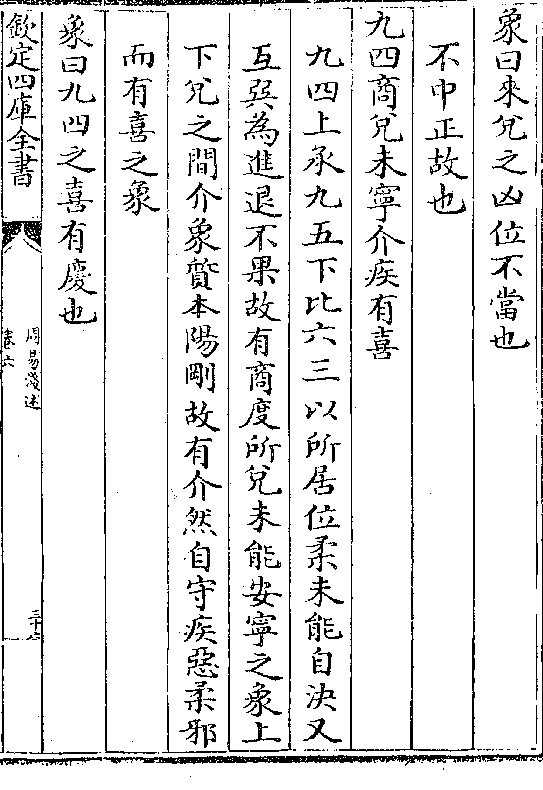 象曰來兌之凶位不當也
不中正故也
九四商兌未寧介疾有喜
九四上承九五下比六三以所居位柔未能自決又
互巽為進退不果故有商度所兌未能安寧之象上
下兌之間介象質本陽剛故有介然自守疾惡柔邪
而有喜之象
象曰九四之喜有慶也
欽定四庫全書
周易淺述
卷六